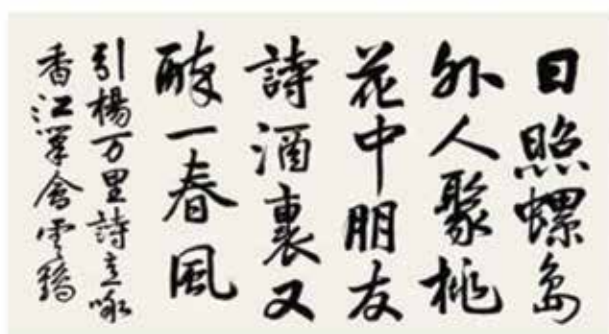 日照螺島
外人聚桃
花中朋友
詩酒裏又
醉一春風
引楊万里詩意咏
香江筆會雲鶴